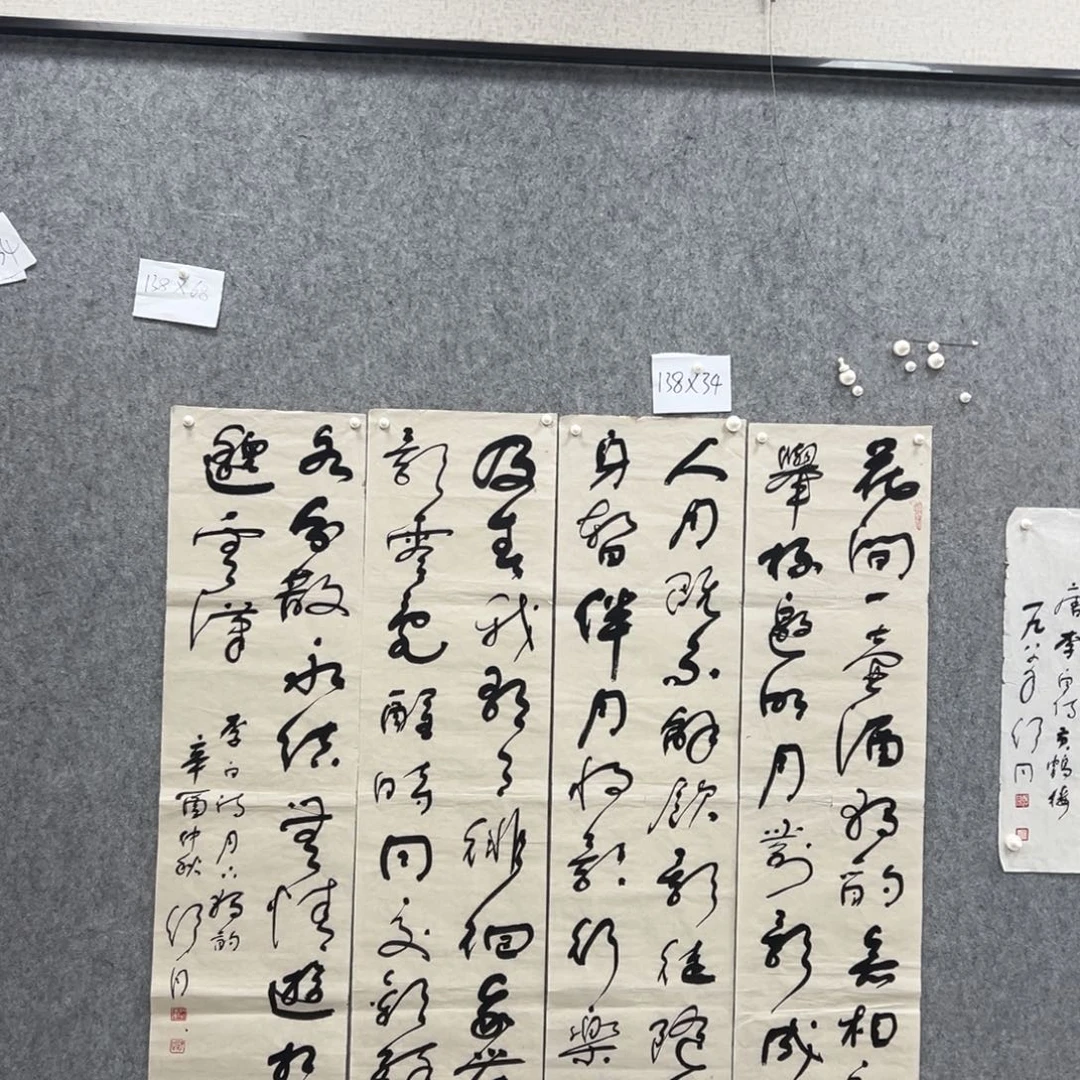 138X68
138X34
花間一壺酒獨酌無相
舉杯邀明月對影成
人月既不解飲影徒隨
身暫伴月將影行樂
及春我歌月徘徊我舞
影零亂醒時同交歡醉
各分散永結無情遊相
邈雲漢
李白詩月下獨酌
辛酉仲秋 舒同
唐李白詩黃鶴樓
舒同